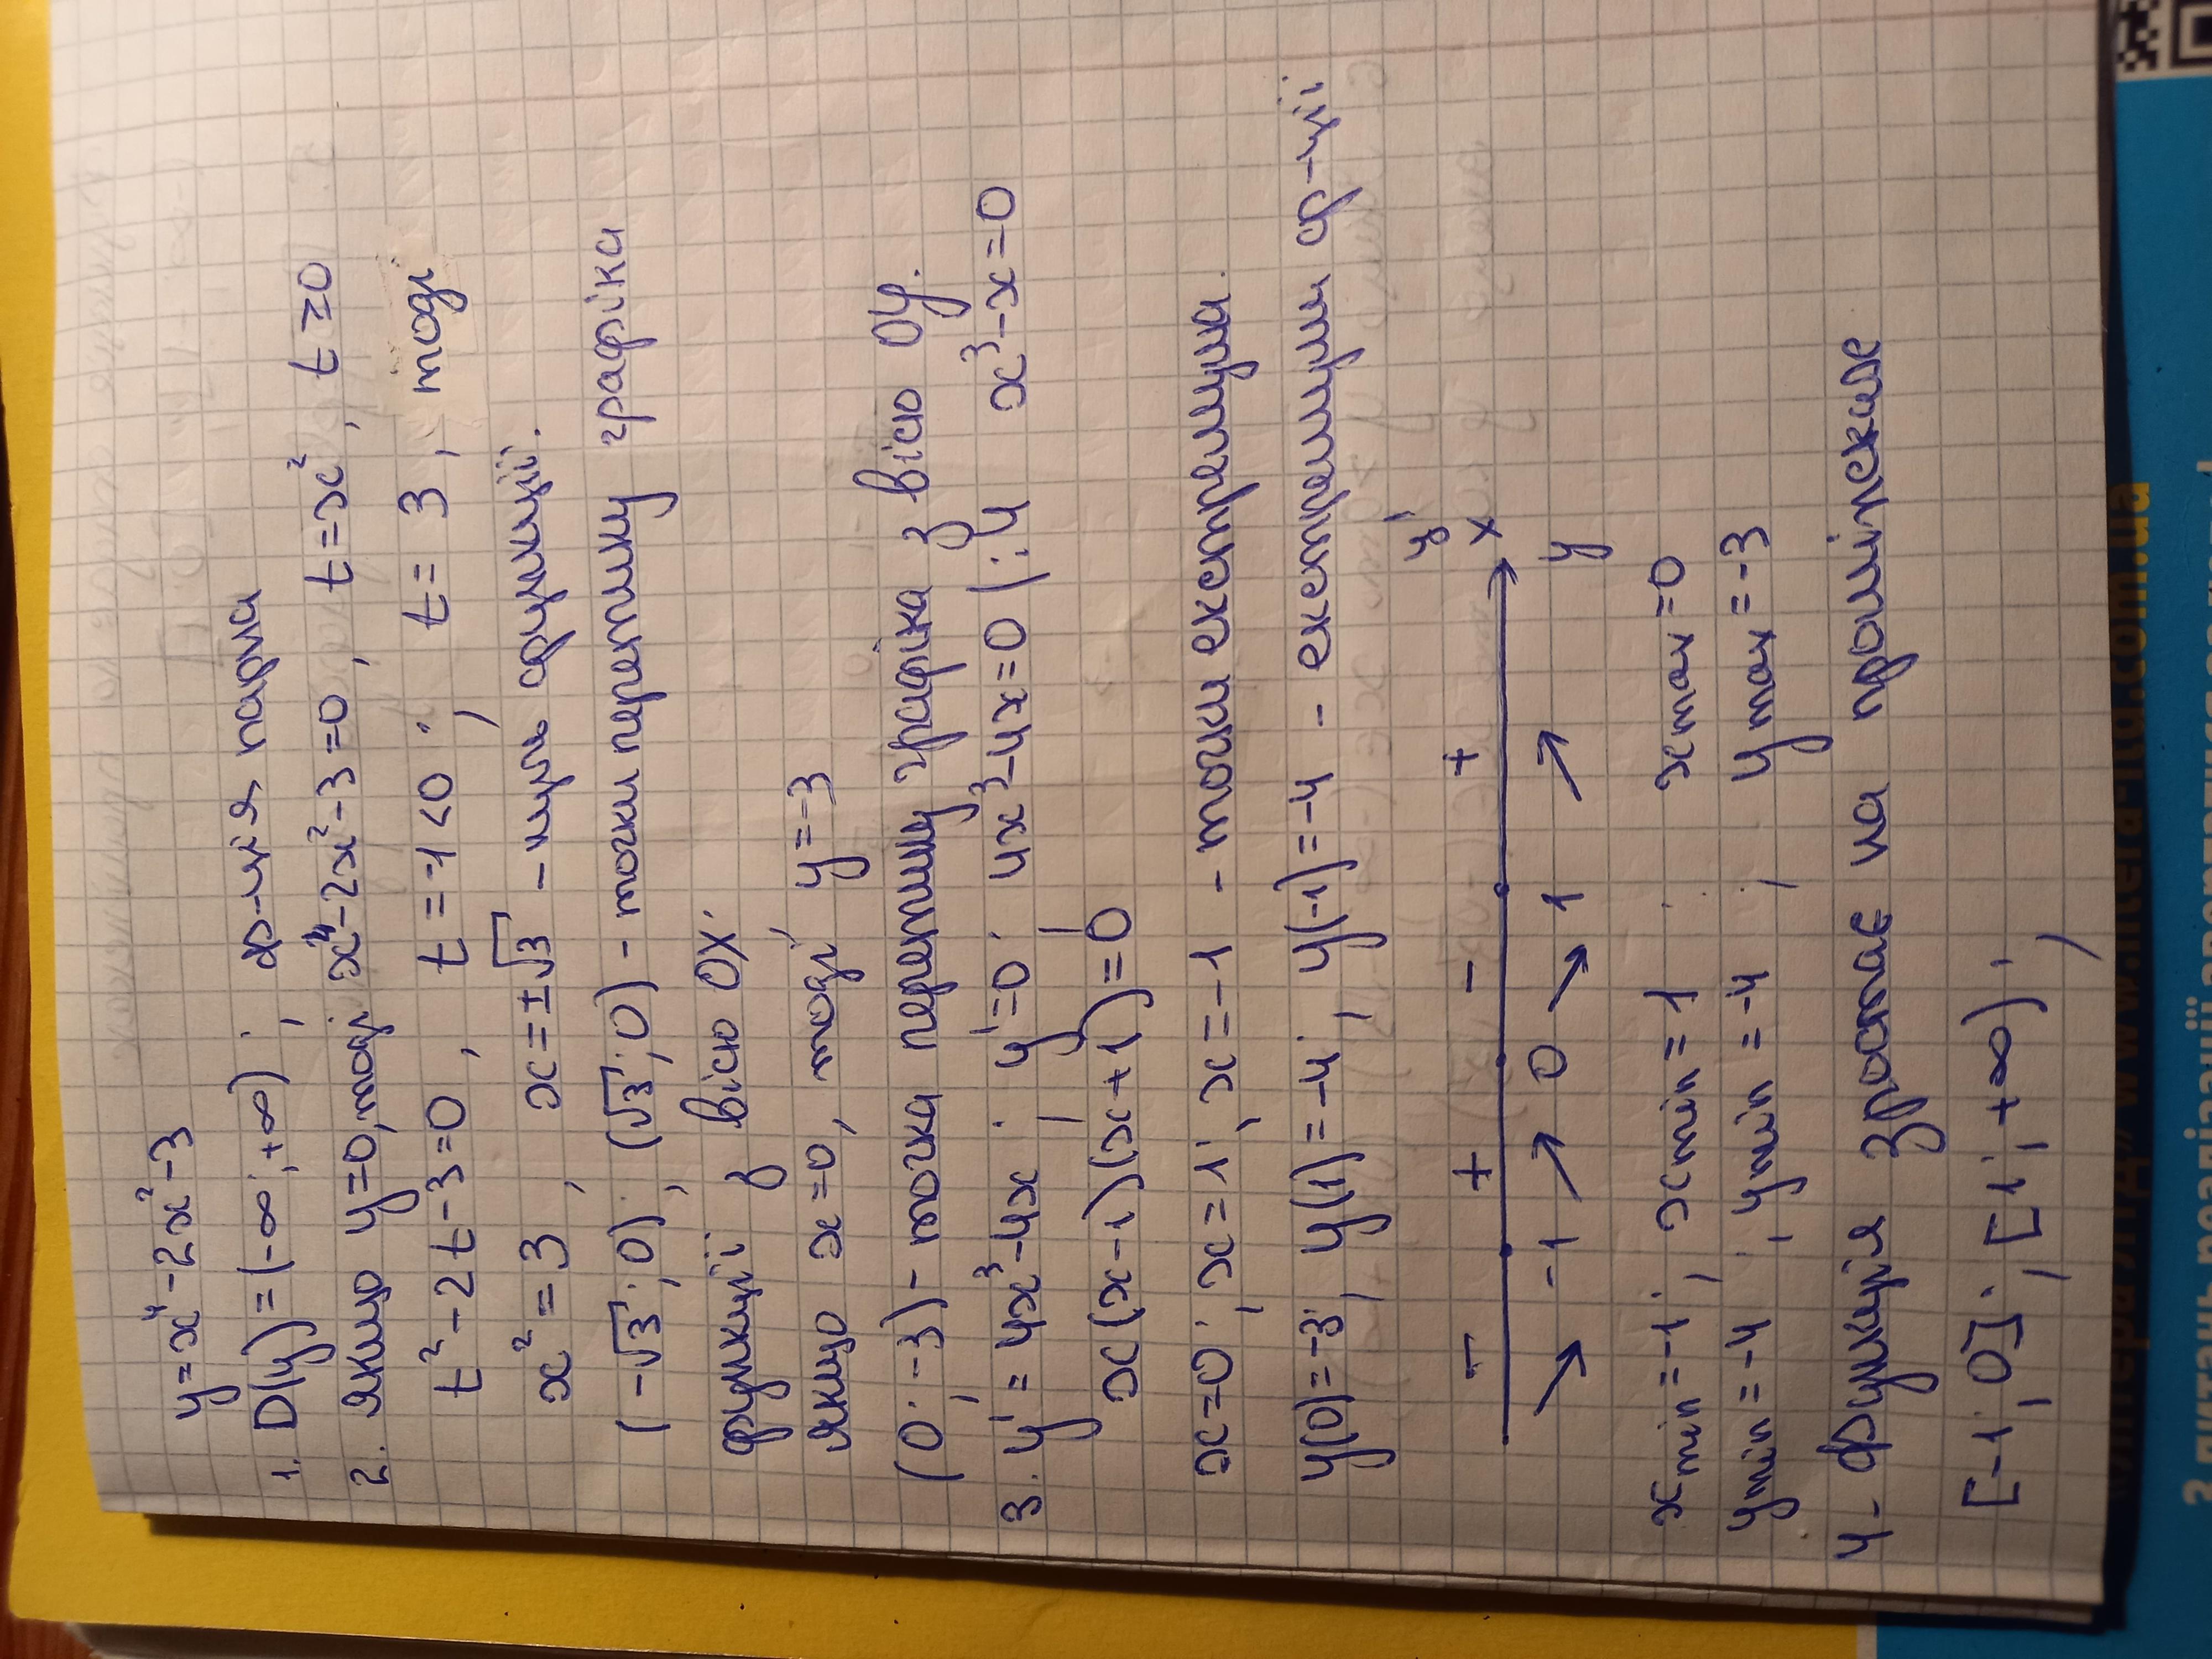 y=x⁴-2x²-3
1. D(y)=(-∞;+∞); ф-ція парна
2. якщо y=0, тоді x⁴-2x²-3=0, t=x², t≥0
t²-2t-3=0, t=-1<0; t=3, тоді
x²=3, x=±√3 - нулі функції.
(-√3;0); (√3;0) - точки перетину графіка
функції з вісю ОХ.
якщо x=0, тоді y=-3
(0;-3) - точка перетину графіка з вісю ОУ.
3. y'=4x³-4x; y'=0; 4x³-4x=0 |:4 x³-x=0
x(x-1)(x+1)=0
x=0; x=1; x=-1 - точки екстремума.
y(0)=-3; y(1)=-4; y(-1)=-4 - екстремуми ф-ції
- + - + y'
x
↘ -1 ↗ 0 ↘ 1 ↗ y
xmin=-1; xmin=1; xmax=0
ymin=-4; ymin=-4; ymax=-3
4. функція зростає на проміжках
[-1;0]; [1;+∞);
www.intera-ltd.com.ua